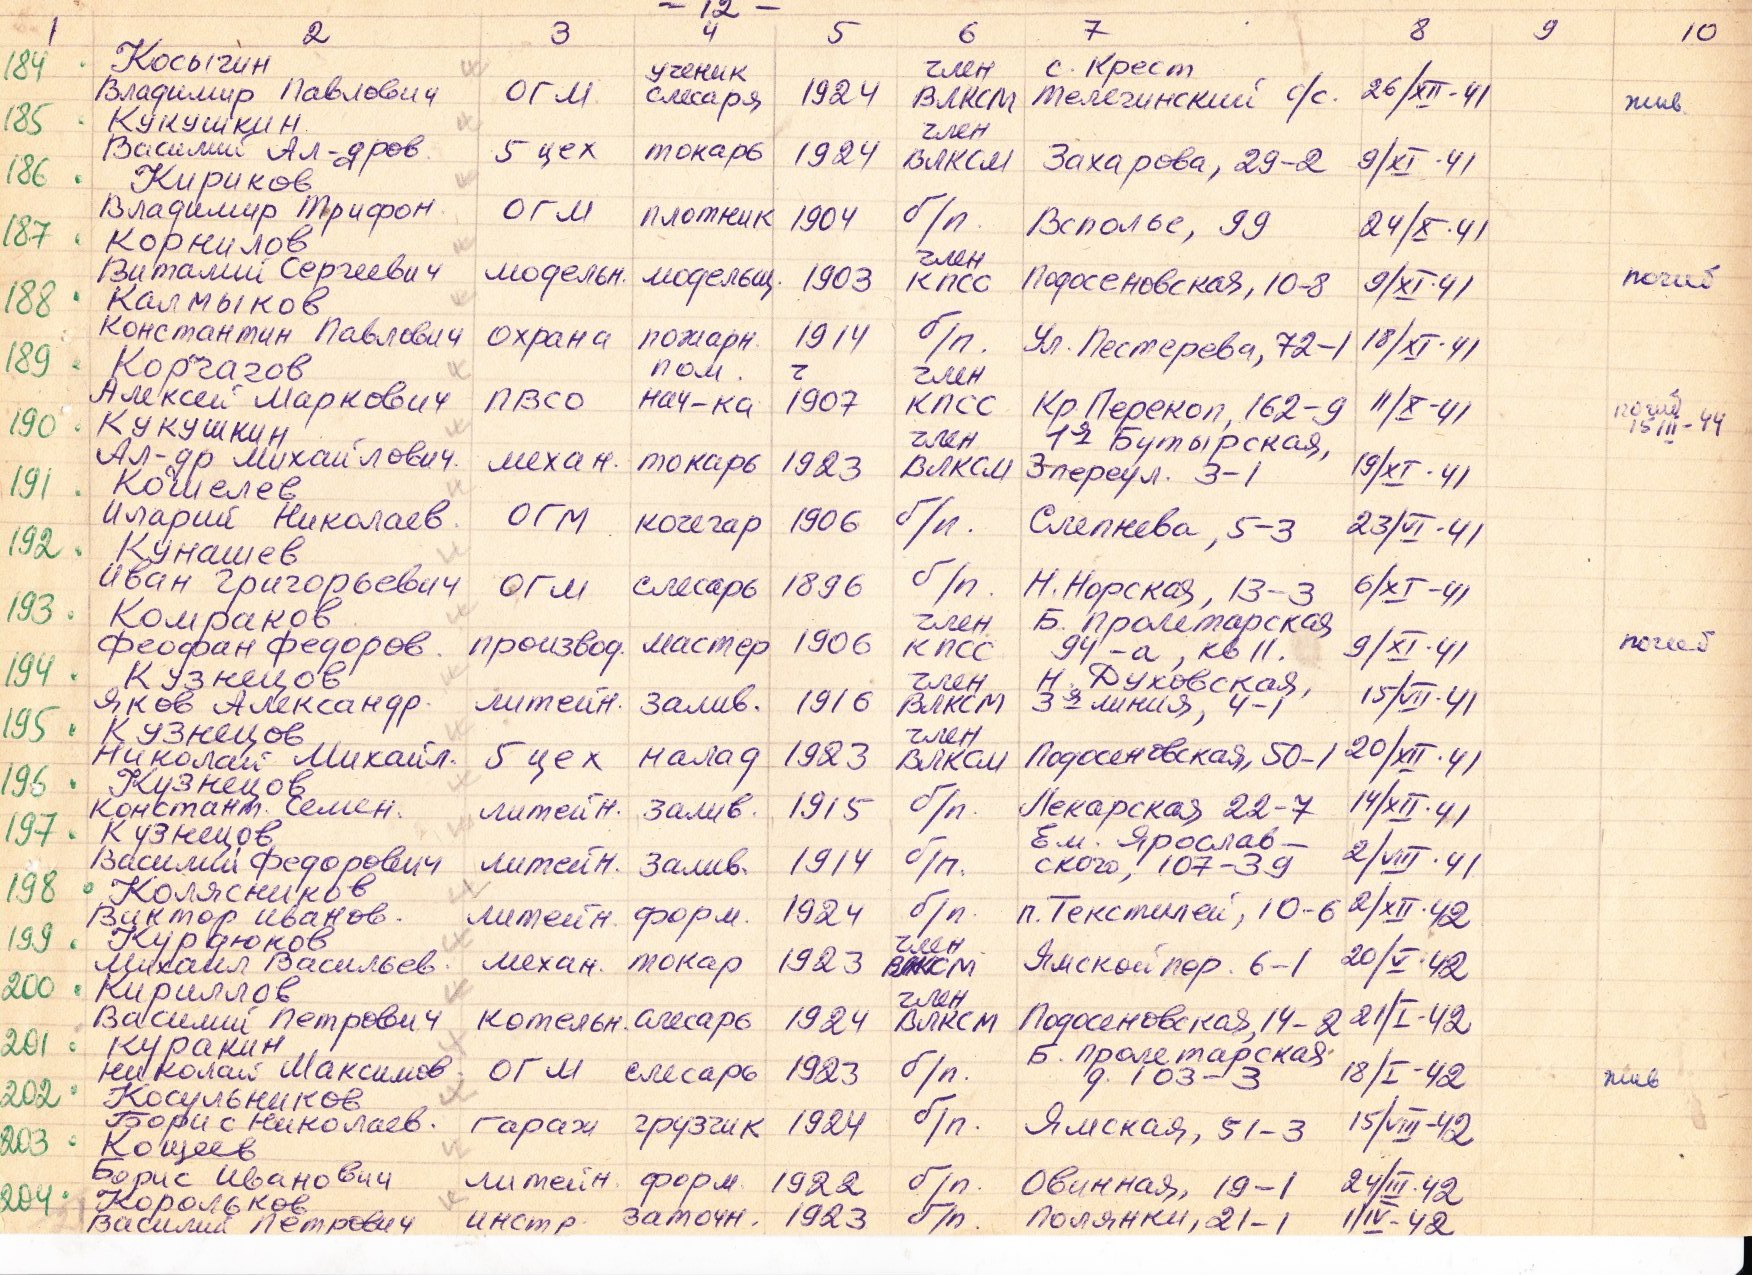 - 12 -
1 2 3 4 5 6 7 8 9 10
184 Косыгин ученик член с. Крест
Владимир Павлович ОГМ слесаря 1924 ВЛКСМ Телегинский с/с. 26/XII-41 жив
185 Кукушкин член
Василий Ал-дров. 5 цех токарь 1924 ВЛКСМ Захарова, 29-2 9/XI-41
186 Кириков
Владимир Трифон. ОГМ плотник 1904 б/п. Всполье, 99 24/X-41
187 Корнилов член
Виталий Сергеевич модельн. модельщ. 1903 КПСС Подосеновская, 10-8 9/XI-41 погиб
188 Калмыков
Константин Павлович охрана пожарн. 1914 б/п. Ул. Пестерева, 72-1 18/XI-41
189 Корчагов пом. член
Алексей Маркович ПВСО нач-ка 1907 КПСС Кр. Перекоп, 162-9 11/X-41 погиб
15 III-44
190 Кукушкин член 1я Бутырская,
Ал-др Михайлович. механ. токарь 1923 ВЛКСМ 3 переул. 3-1 19/XI-41
191 Кошелев
Иларий Николаев. ОГМ кочегар 1906 б/п. Слепнева, 5-3 23/VI-41
192 Кунашев
Иван Григорьевич ОГМ слесарь 1896 б/п. Н. Норская, 13-3 6/XI-41
193 Комраков член Б. Пролетарская
Феофан Федоров. производ. мастер 1906 КПСС 94-а, кв 11. 9/XI-41 погиб
194 Кузнецов член Н. Духовская,
Яков Александр. литейн. залив. 1916 ВЛКСМ 3я линия, 4-1 15/VII-41
195 Кузнецов член
Николай Михайл. 5 цех налад 1923 ВЛКСМ Подосеновская, 50-1 20/XII-41
196 Кузнецов
Констант. Семен. литейн. залив. 1915 б/п. Лекарская 22-7 14/XII-41
197 Кузнецов Ем. Ярослав-
Василий Федорович литейн. залив. 1914 б/п. ского, 107-39 2/VIII-41
198 Колясников
Виктор Иванов. литейн. форм. 1924 б/п. п. Текстилей, 10-6 2/XII-42
199 Курдюков член
Михаил Васильев. механ. токар 1923 ВЛКСМ Ямской пер. 6-1 20/V-42
200 Кириллов член
Василий Петрович котельн. слесарь 1924 ВЛКСМ Подосеновская, 14-2 21/I-42
201 Куракин Б. Пролетарская
Николай Максимов. ОГМ слесарь 1923 б/п. д. 103-3 18/I-42 жив
202 Косульников
Борис Николаев. гараж грузчик 1924 б/п. Ямская, 51-3 15/VIII-42
203 Кощеев
Борис Иванович литейн. форм. 1922 б/п. Овинная, 19-1 24/III-42
204 Корольков
Василий Петрович инстр. заточн. 1923 б/п. Полянки, 21-1 1/IV-42